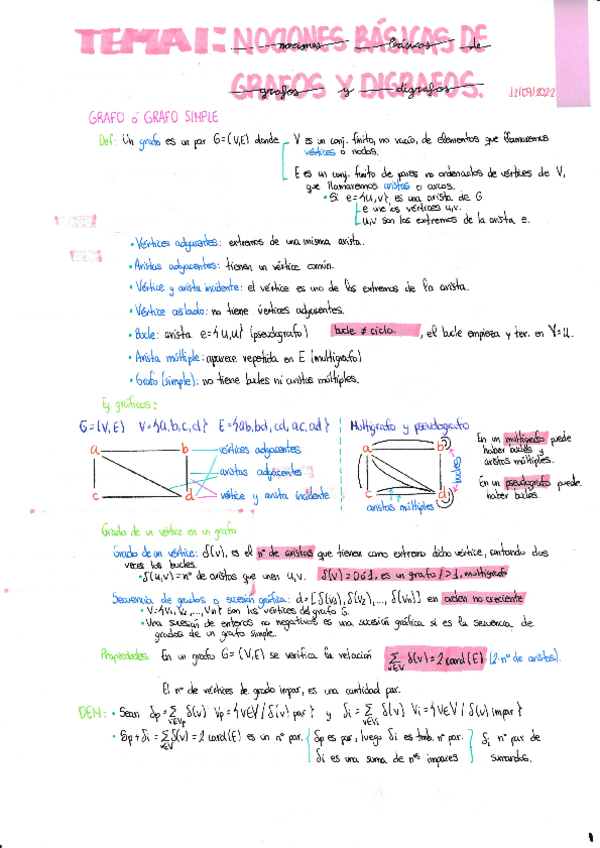 TEMA 1: NOCIONES BÁSICAS DE
nociones básicas de
GRAFOS Y DIGRAFOS.
grafos y digrafos
12/09/2022
GRAFO ó GRAFO SIMPLE
Def: Un grafo es un par G=(V,E) donde
V es un conj. finito, no vacío, de elementos que llamaremos
vértices o nodos.
E es un conj. finito de pares no ordenados de vértices de V,
que llamaremos aristas o arcos.
• Si e={u,v} es una arista de G
e une los vértices u,v.
u,v son los extremos de la arista e.
• Vértices adyacentes: extremos de una misma arista.
• Aristas adyacentes: tienen un vértice común.
• Vértice y arista incidente: el vértice es uno de los extremos de la arista.
• Vértice aislado: no tiene vértices adyacentes.
• Bucle: arista e={u,u} (pseudografo) bucle ≠ ciclo. , el bucle empieza y ter. en V=u.
• Arista múltiple: aparece repetida en E (multigrafo)
• Grafo (simple): no tiene bucles ni aristas múltiples.
Ej gráficos:
G=(V,E) V={a,b,c,d} E={ab,bd,cd,ac,ad}
a b
c d
vértices adyacentes
aristas adyacentes
vértice y arista incidente
Multigrafo y pseudografo
a b
c d
bucles
aristas múltiples
En un multigrafo puede
haber bucles y
aristas múltiples.
En un pseudografo puede
haber bucles.
Grado de un vértice en un grafo
Grado de un vértice: δ(v), es el nº de aristas que tienen como extremo dicho vértice, contando dos
veces los bucles.
• δ(u,v)= nº de aristas que unen u,v. δ(v)=0 ó 1, es un grafo / >1, multigrafo
Secuencia de grados o sucesión gráfica: d=[δ(v1), δ(v2), ..., δ(vn)] en orden no creciente
• V={v1, v2, ..., vn} son los vértices del grafo G.
• Una sucesión de enteros no negativos es una sucesión gráfica si es la secuencia de
grados de un grafo simple.
Propiedades En un grafo G=(V,E) se verifica la relación ∑ δ(v)=2card(E) (2·nº de aristas).
v∈V
El nº de vértices de grado impar, es una cantidad par.
DEM: • Sean δp=∑ δ(v) Vp={v∈V/δ(v) par} y δi=∑ δ(v) Vi={v∈V/δ(v) impar}
v∈Vp v∈Vi
• δp+δi=∑δ(v)=2card(E) es un nº par. δp es par, luego δi es tmb. nº par. δi nº par de
v∈V
δi es una suma de nºs impares sumandos.
1